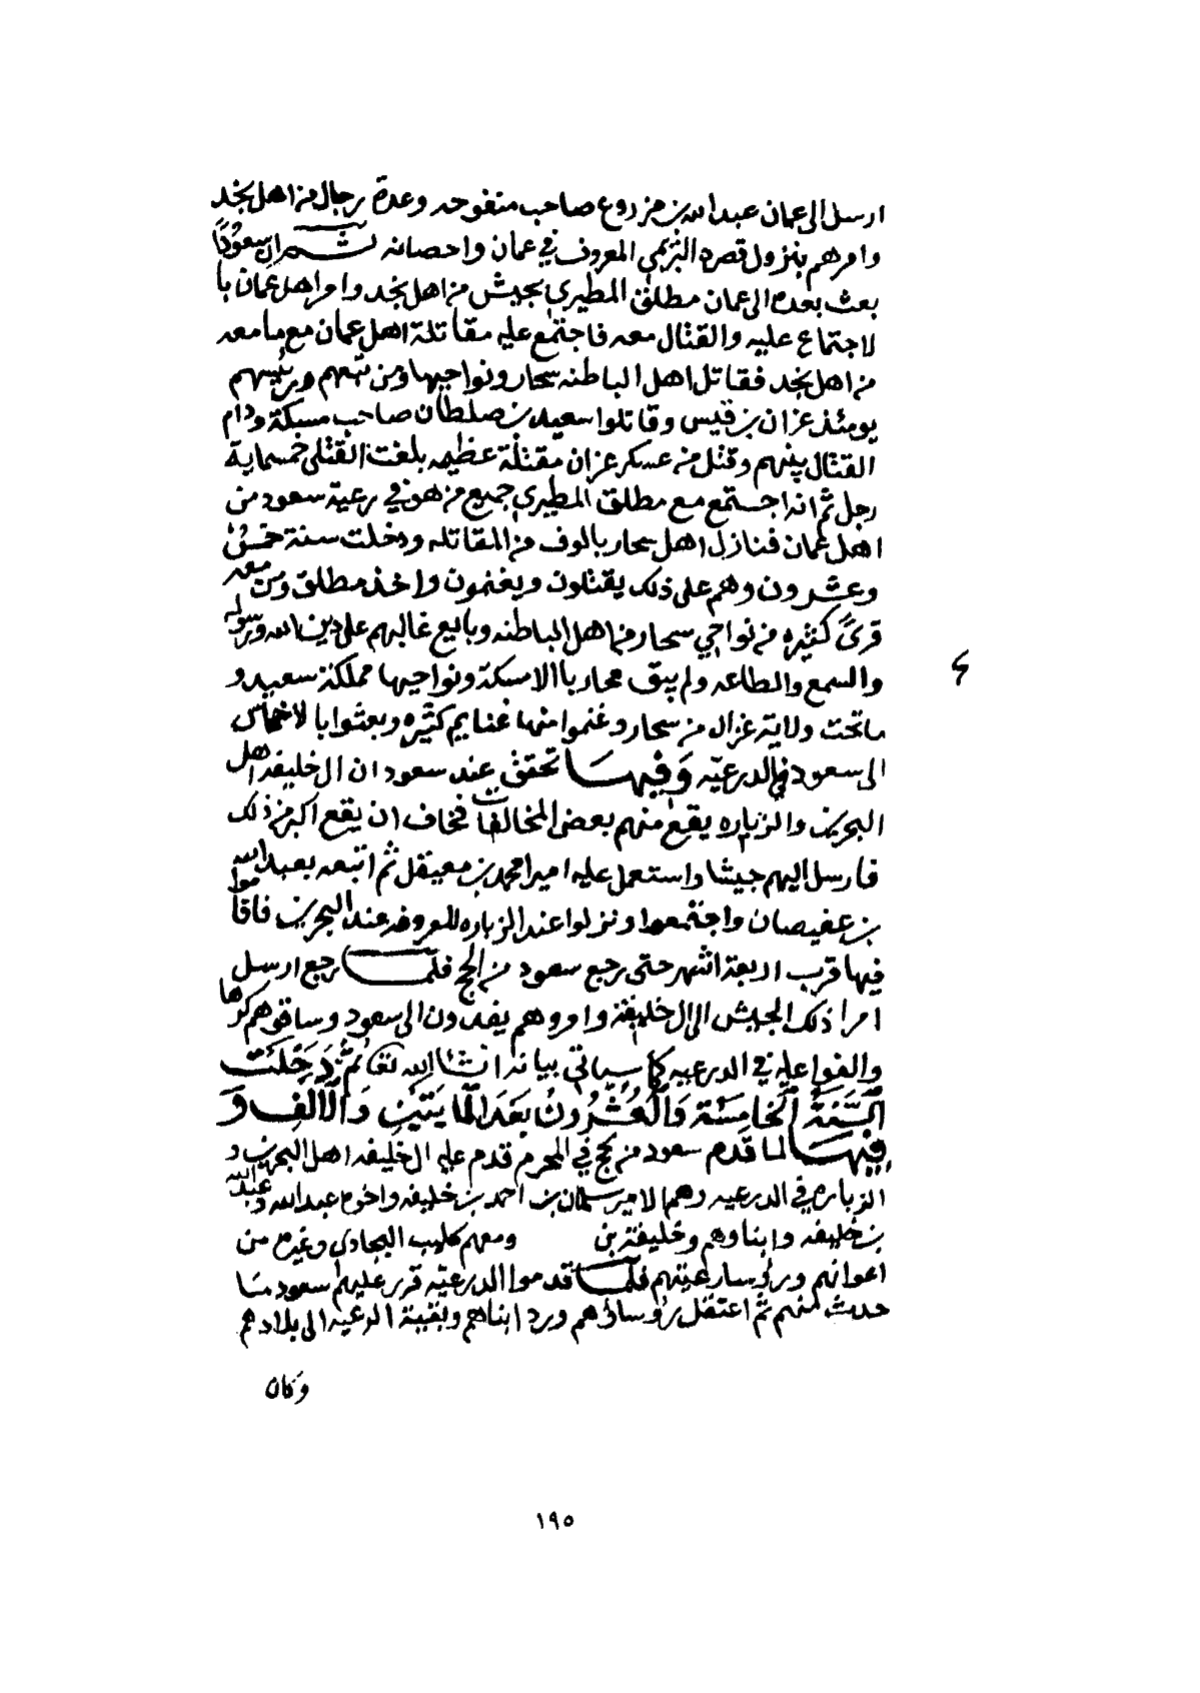 ارسل الى عمان عبدالله بن مزروع صاحب منفوحه وعدة رجال من اهل نجد
وامرهم بنزول قصره البريمي المعروف في عمان واحصانه ثـــم ان سعودًا
بعث بعده الى عمان مطلق المطيري بجيش من اهل نجد وامر اهل عمان با
لاجتماع عليه والقتال معه فاجتمع عليه مقاتلة اهل عمان مع ما معه
من اهل نجد فقاتل اهل الباطنه سحار ونواحيها ومن تبعهم ورئيسهم
يومئذ عزان بن قيس وقاتلوا سعيد بن صلطان صاحب مسكة ودام
القتال بينهم وقتل من عسكر عزان مقتلة عظيمه بلغت القتلى خمسماية
رجل ثم انه اجستمع مع مطلق المطيري جميع من هو في رعية سعود من
اهل عمان فنازل اهل سحار بالوف من المقاتله ودخلت سنة خمس
وعشرون وهم على ذلك يقتلون ويغنمون واخذ مطلق ومن معه
قرىً كثيره من نواحي سحار من اهل الباطنه وبايع غالبهم على دين الله ورسوله
والسمع والطاعه ولم يبق محاربا الا مسكة ونواحيها مملكة سعيد و
ما تحت ولاية عزان من سحار وغنموا منها غنايم كثيره وبعثوا بالاخماس
الى سعود في الدرعيه وَفيهـــا تحقق عند سعود ان ال خليفه اهل
البحرين والزباره يقع منهم بعض المخالفات فخاف ان يقع اكبر من ذلك
فارسل اليهم جيشا واستعمل عليه امير محمد بن معيقل ثم اتبعه بعبدالله
بن عفيصان واجتمعوا ونزلوا عند الزباره المعروفه عند البحرين فاقاموا
فيها قرب اربعة اشهر حتى رجع سعود من الحج فلمـــا رجع ارسل
امرا ذلك الجيش الى ال خليفة وامروهم يفدون الى سعود وساقوهم كرها
والفوا عليه في الدرعيه كما سياتي بيانه انشاالله تعا ثُمَّ دَخَلَت
السَّنَةُ الخامِسَة وَالعُشْرُونُ بَعَدَ المايَتَيْنِ وَالاَلفِ وَ
فِيهَـــا لما قدم سعود من حج في المحرم قدم عليه ال خليفه اهل البحرين و
الزباره في الدرعيه وهم الامير سلمان بن احمد بن خليفه واخوه عبدالله وعبدالله
بن خليفه وابناوهم وخليفة بن ومعهم كليب البجادي وغيره من
اعوانهم وروسا رعيتهم فلمـــا قدموا الدرعيه قرر عليهم سعود ما
حدث منهم ثم اعتقل رؤساؤهم ورد ابناهم وبقية الرعيه الى بلادهم
وكان
١٩٥